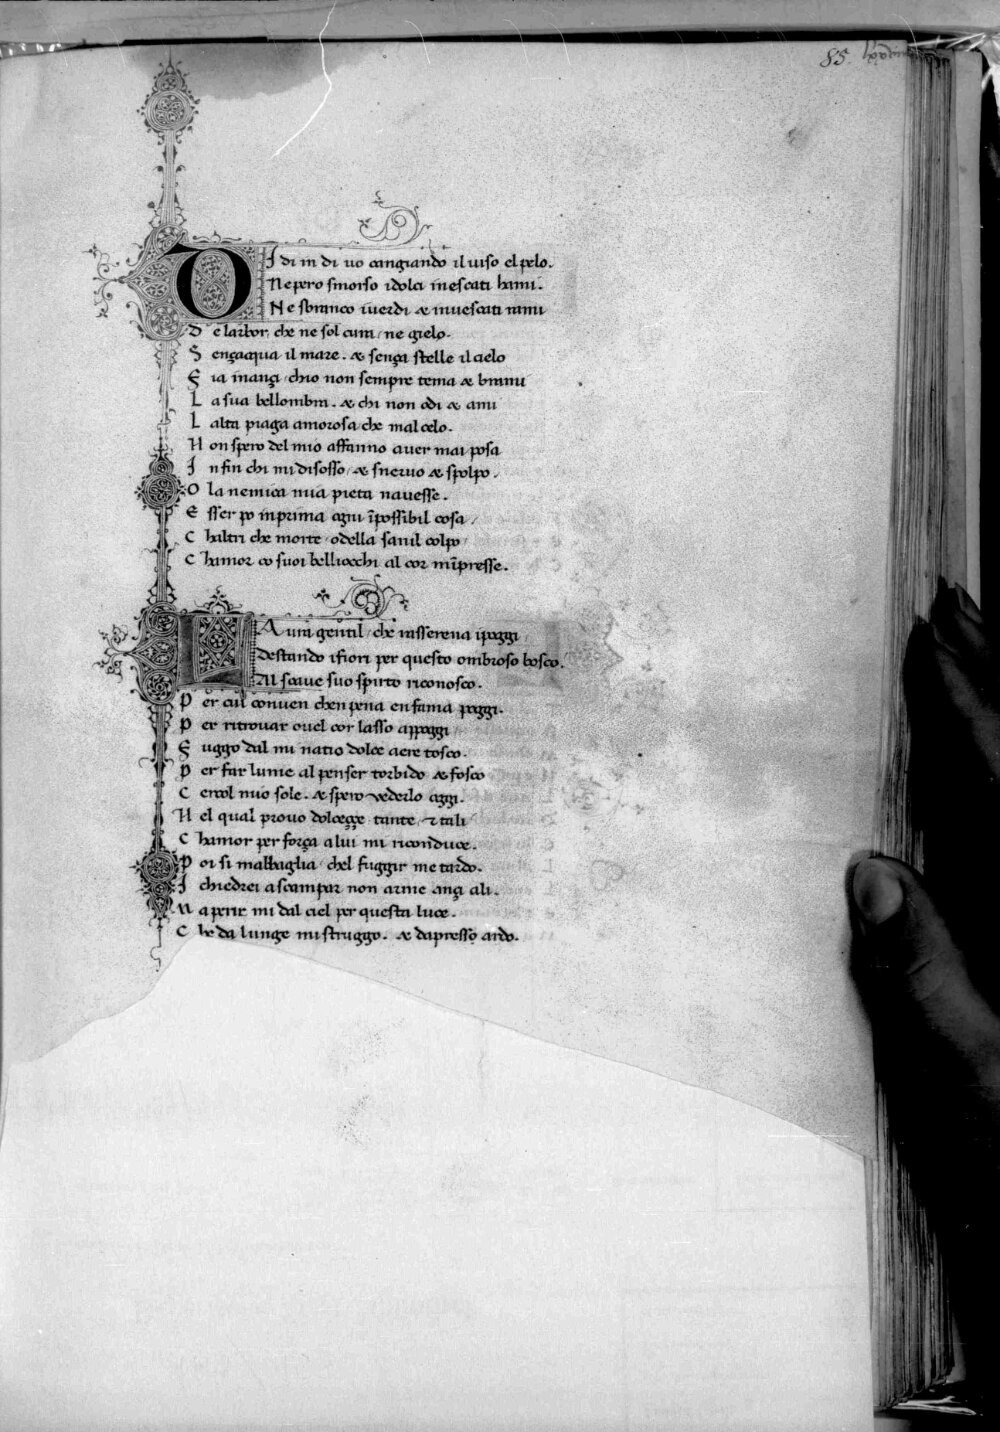 85. lxxxiiii
DI di in di uo cangiando il uiso el pelo.
Ne pero smorso idolci inescati hami.
Ne sbranco iuerdi & inuescati rami
De larbor, che ne sol cura, ne gielo.
Sençacqua il mare. & sença stelle il cielo
Fia inançi chio non sempre tema & brami
La sua bellombra. & chi non odi & ami
Lalta piaga amorosa che mal celo.
Non spero del mio affanno auer mai posa
Infin chi mi disosso, & sneruo & spolpo.
O la nemica mia pieta nauesse.
Esser po inprima agni īpossibil cosa,
Chaltri che morte, odella sanil colpo
Chamor co suoi belliocchi al cor mīpresse.
LAura gentil, che rasserena ipoggi
Destando ifiori per questo ombroso bosco.
Al soaue suo spirto riconosco.
Per cui conuen chen pena en fama poggi.
Per ritrouar ouel cor lasso appoggi
Fuggo dal mi natio dolce aere tosco.
Per far lume al penser torbido & fosco
Cercol mio sole. & spero vederlo oggi.
Nel qual prouo dolceççe tante, & tali
Chamor per força a lui mi riconduce.
Poi si mabbaglia, chel fuggir me tardo.
I chiedrei a scampar non arme ançi ali.
Ma perir mi dal ciel per questa luce.
Che da lunge mi struggo. & dapresso ardo.